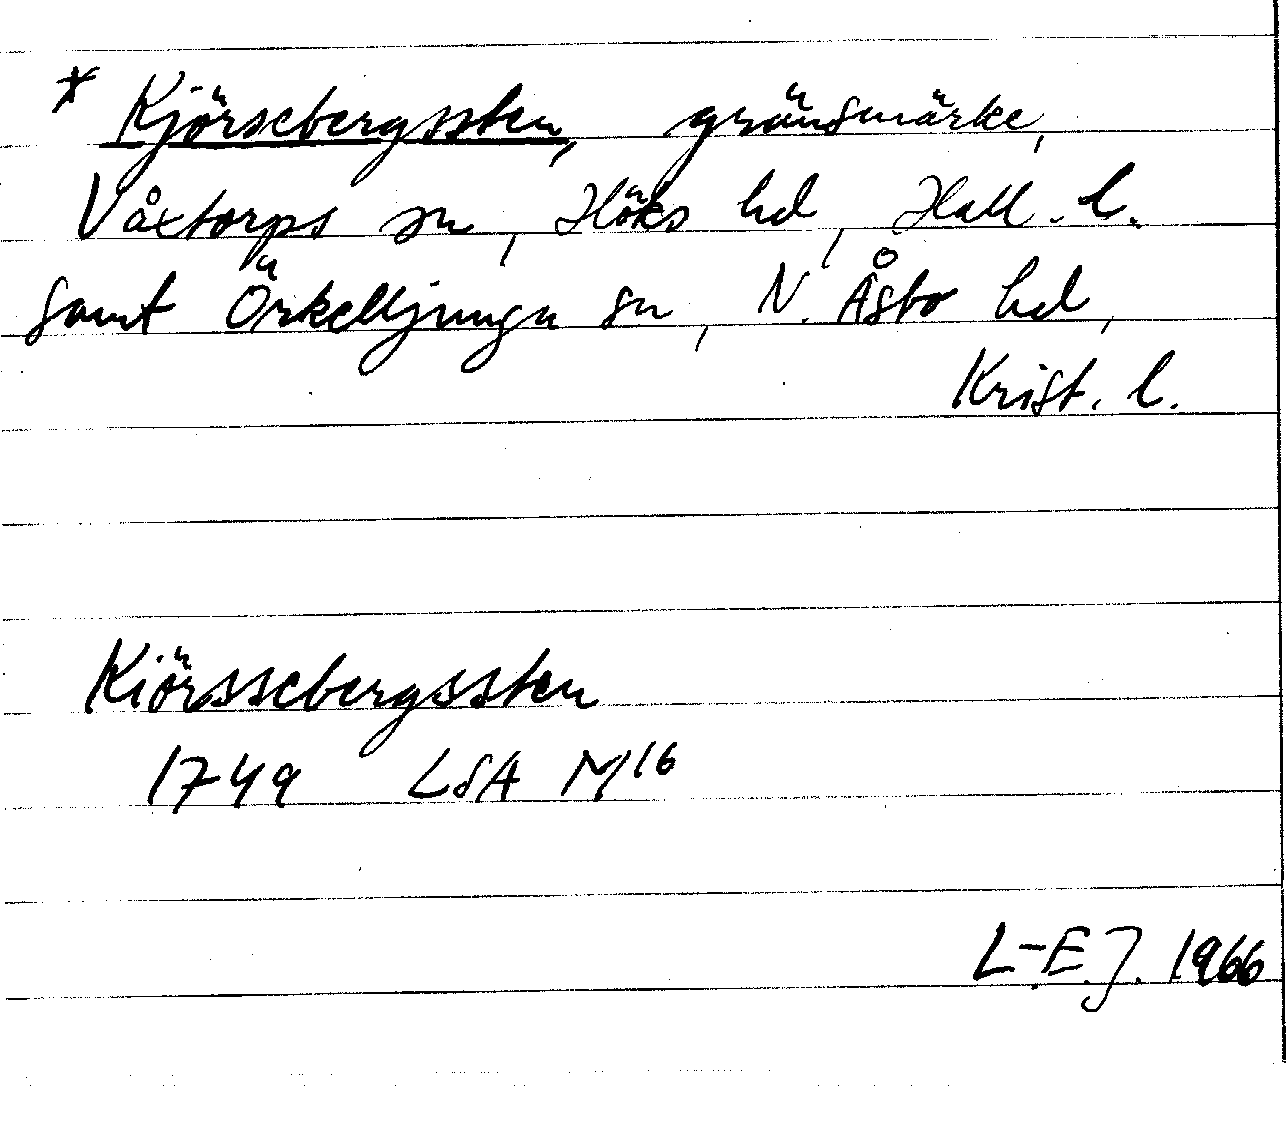 * Kjörsebergssten, gränsmärke,
Våxtorps sn, Höks hd, Hall. l.
samt Örkelljunga sn, N. Åsbo hd,
Krist. l.
Kiörssebergssten
1749 LSA M16
L-E.J. 1966